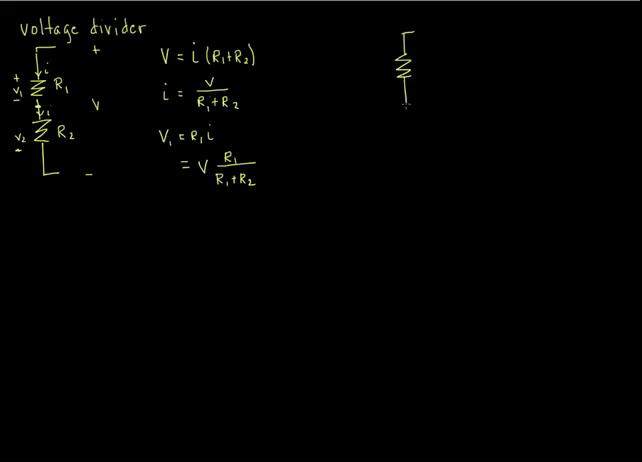 voltage divider
+
i
+
V₁
-
R₁
V
i
V₂
-
R₂
-
V = i (R₁+R₂)
i = V / R₁+R₂
V₁ = R₁ i
= V R₁ / R₁+R₂